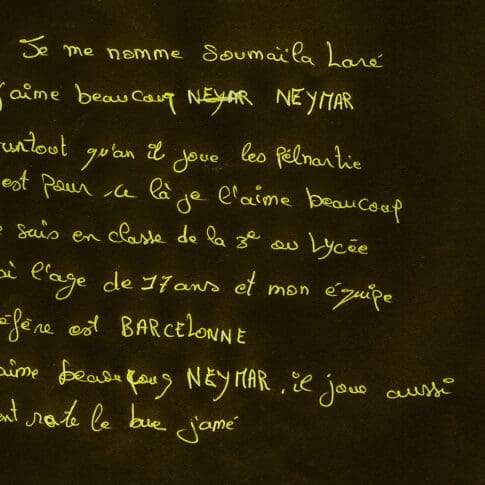 Je me nomme Soumaïla Laré
j'aime beaucoup NEYAR NEYMAR
urtout qu'an il joue les pélnartie
est pour ce là je l'aime beaucoup
e suis en classe de la 3e au Lycée
ai l'age de 17 ans et mon équipe
éfére est BARCELONNE
aime beaucoup NEYMAR, il joue aussi
ent rate le bue j'amé